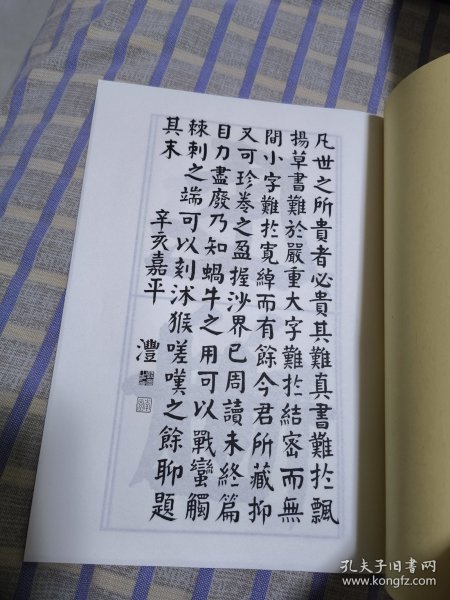 凡世之所貴者必貴其難真書難於飄
揚草書難於嚴重大字難於結密而無
間小字難於寬綽而有餘今君所藏抑
又可珍卷之盈握沙界已周讀未終篇
目力盡廢乃知蝸牛之用可以戰蠻觸
棘刺之端可以刻沐猴嗟嘆之餘聊題
其末
辛亥嘉平
灃
孔夫子旧书网
www.kongfz.com